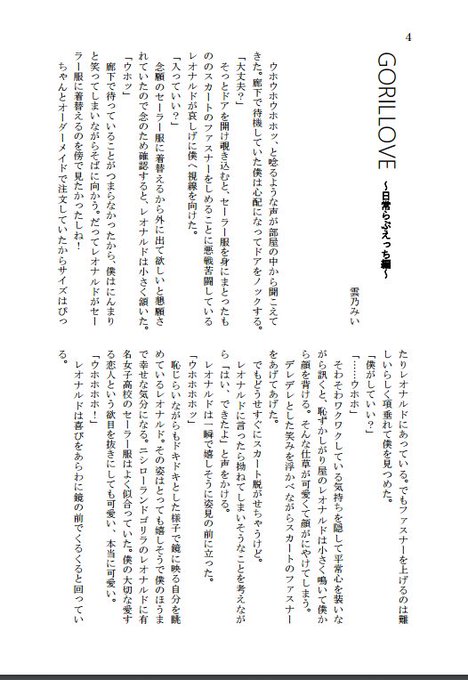 4
GORILLOVE
～日常らぶえっち編～
雲乃みい
ウホウホウホホッ、と唸るような声が部屋の中から聞こえて
きた。廊下で待機していた僕は心配になってドアをノックする。
「大丈夫？」
そっとドアを開け覗き込むと、セーラー服を身にまとったも
ののスカートのファスナーをしめることに悪戦苦闘している
レオナルドが哀しげに僕へ視線を向けた。
「入っていい？」
念願のセーラー服に着替えるから外に出て欲しいと懇願さ
れていたので念のため確認すると、レオナルドは小さく頷いた。
「ウホッ」
廊下で待っていることがつまらなかったから、僕はにんまり
と笑ってしまいながらそばに向かう。だってレオナルドがセー
ラー服に着替えるのを傍で見たかったしね！
ちゃんとオーダーメイドで注文していたからサイズはぴっ
たりレオナルドにあっている。でもファスナーを上げるのは難
しいらしく項垂れて僕を見つめた。
「僕がしていい？」
「……ウホ」
そわそわワクワクしている気持ちを隠して平常心を装いな
がら訊くと、恥ずかしがり屋のレオナルドは小さく鳴いて僕か
ら顔を背ける。そんな仕草が可愛くて顔がにやけてしまう。
デレデレとした笑みを浮かべながらスカートのファスナー
をあげてあげた。
でもどうせすぐにスカート脱がせちゃうけど。
レオナルドに言ったら拗ねてしまいそうなことを考えなが
ら「はい、できたよ」と声をかける。
レオナルドは一瞬で嬉しそうに姿見の前に立った。
「ウホホウホホッ」
恥じらいながらもドキドキとした様子で鏡に映る自分を眺
めているレオナルド。その姿はとっても嬉しそうで僕のほうま
で幸せな気分になる。ニシローランドゴリラのレオナルドに有
名女子高校のセーラー服はよく似合っていた。僕の大切な愛す
る恋人という欲目を抜きにしても可愛い、本当に可愛い。
「ウホホホホ！」
レオナルドは喜びをあらわに鏡の前でくるくると回ってい
る。